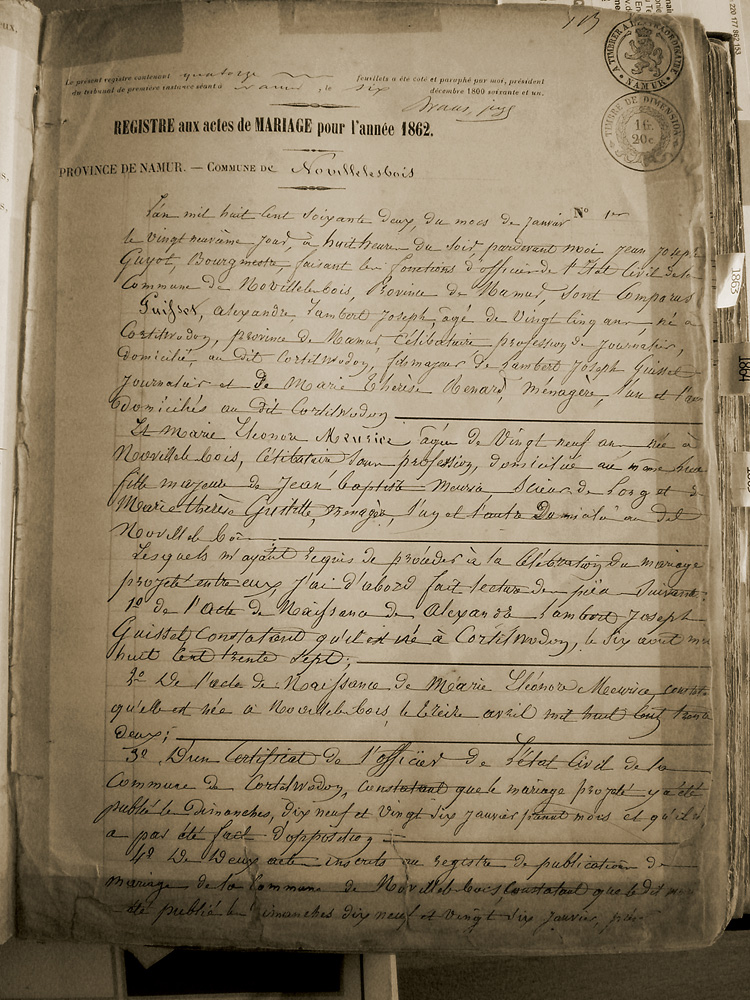 Le présent registre contenant quatorze feuillets a été coté et paraphé par moi, président
du tribunal de première instance séant à Namur, le six décembre 1800 soixante et un.
A TIMBRER A L'EXTRAORDINAIRE NAMUR
TIMBRE DE DIMENSION
16.
20c
REGISTRE aux actes de MARIAGE pour l'année 1862.
PROVINCE DE NAMUR. — COMMUNE DE Novillelesbois
N° 1er
L'an mil huit cent soixante deux, du mois de janvier
le vingt neuvième jour, à huit heures du soir, pardevant moi Jean Joseph
Guyot, Bourgmestre, faisant les fonctions d'officier de l'Etat Civil de la
Commune de Novillelesbois, Province de Namur, sont comparus
Guisset, Alexandre Lambert Joseph, âgé de vingt cinq ans, né à
Cortilwodon, province de Namur, célibataire profession de journalier,
domicilié au dit Cortilwodon, fils majeur de Lambert Joseph Guisset
journalier et de Marie Thérèse Renard, ménagère, l'un et l'autre
domiciliés au dit Cortilwodon
Et Marie Eléonore Meurice âgée de vingt neuf ans née à
Novillelesbois, célibataire sans profession, domiciliée au même lieu
fille majeure de Jean Baptiste Meurice, scieur de long et de
Marie thérèse ménagère, l'un et l'autre Domiciliés au dit
Novillelesbois
Lesquels m'ayant requis de procéder à la célébration du mariage
projeté entre eux, j'ai d'abord fait lecture des pièces suivantes:
1° de l'acte de Naissance de Alexandre Lambert Joseph
Guisset Constatant qu'il est né à Cortilwodon, le six août mil
huit cent trente sept;
2° De l'acte de Naissance de Marie Eléonore Meurice constatant
qu'elle est née à Novillelesbois, le treize avril mil huit cent trente
deux;
3° D'un Certificat de l'officier de l'état Civil de la
Commune de Cortilwodon, constatant que le mariage projeté y a été
publié les Dimanches, dix neuf et vingt six janvier présent mois et qu'il n'y
a pas été fait d'opposition;
4° De Deux actes inscrits au registre de publication de
mariage de la Commune de Novillelesbois, constatant que le dit
été publié les Dimanches dix neuf et vingt six janvier,
1863
1864